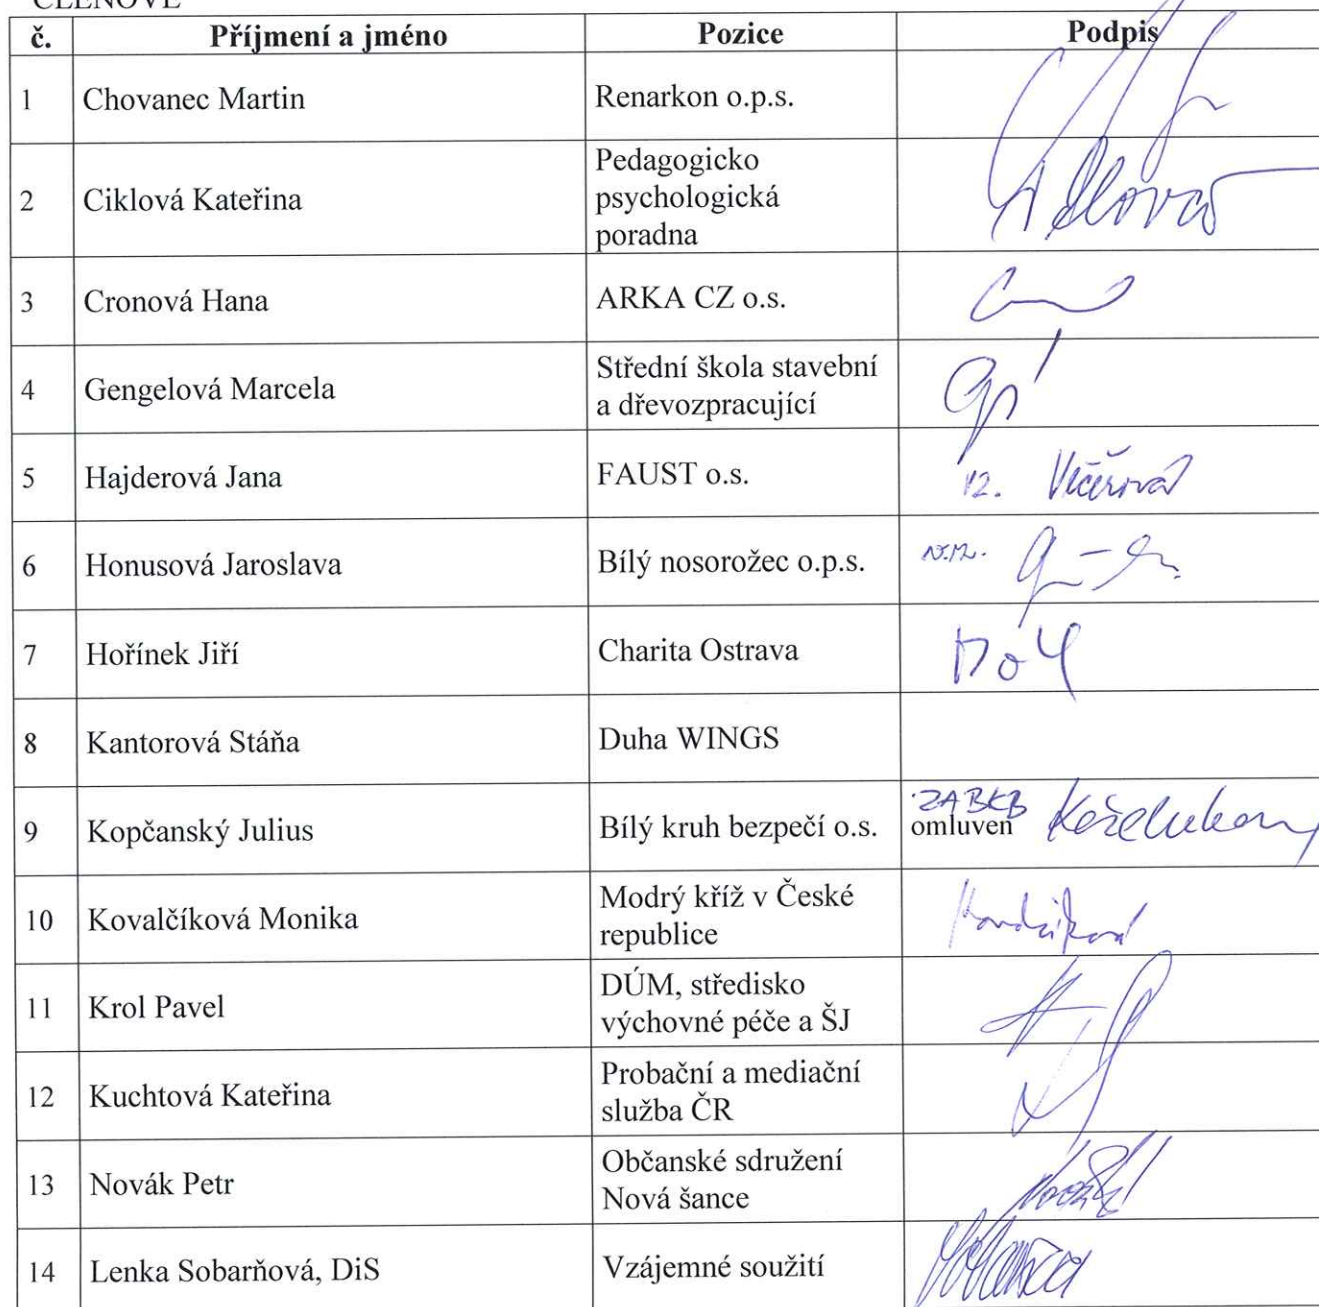 ČLENOVÉ
č. Příjmení a jméno Pozice Podpis
1 Chovanec Martin Renarkon o.p.s.
2 Ciklová Kateřina Pedagogicko
psychologická
poradna
3 Cronová Hana ARKA CZ o.s.
4 Gengelová Marcela Střední škola stavební
a dřevozpracující
5 Hajderová Jana FAUST o.s.
6 Honusová Jaroslava Bílý nosorožec o.p.s.
7 Hořínek Jiří Charita Ostrava
8 Kantorová Stáňa Duha WINGS
9 Kopčanský Julius Bílý kruh bezpečí o.s. ZA BKB
omluven
10 Kovalčíková Monika Modrý kříž v České
republice
11 Krol Pavel DÚM, středisko
výchovné péče a ŠJ
12 Kuchtová Kateřina Probační a mediační
služba ČR
13 Novák Petr Občanské sdružení
Nová šance
14 Lenka Sobarňová, DiS Vzájemné soužití